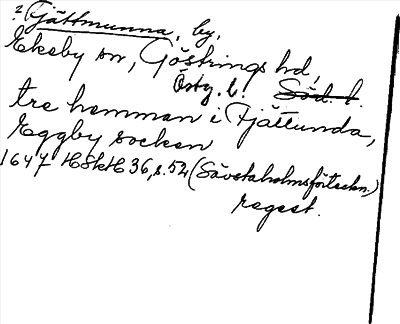 ? Fjättmunna, by,
Ekeby sn, Göstrings hd,
Östg. l. Söd. l.
tre hemman i Fjättunda,
Eggby socken
1647 HSkH 36, s. 52 (Sävstaholmsförteckn.)
regest.